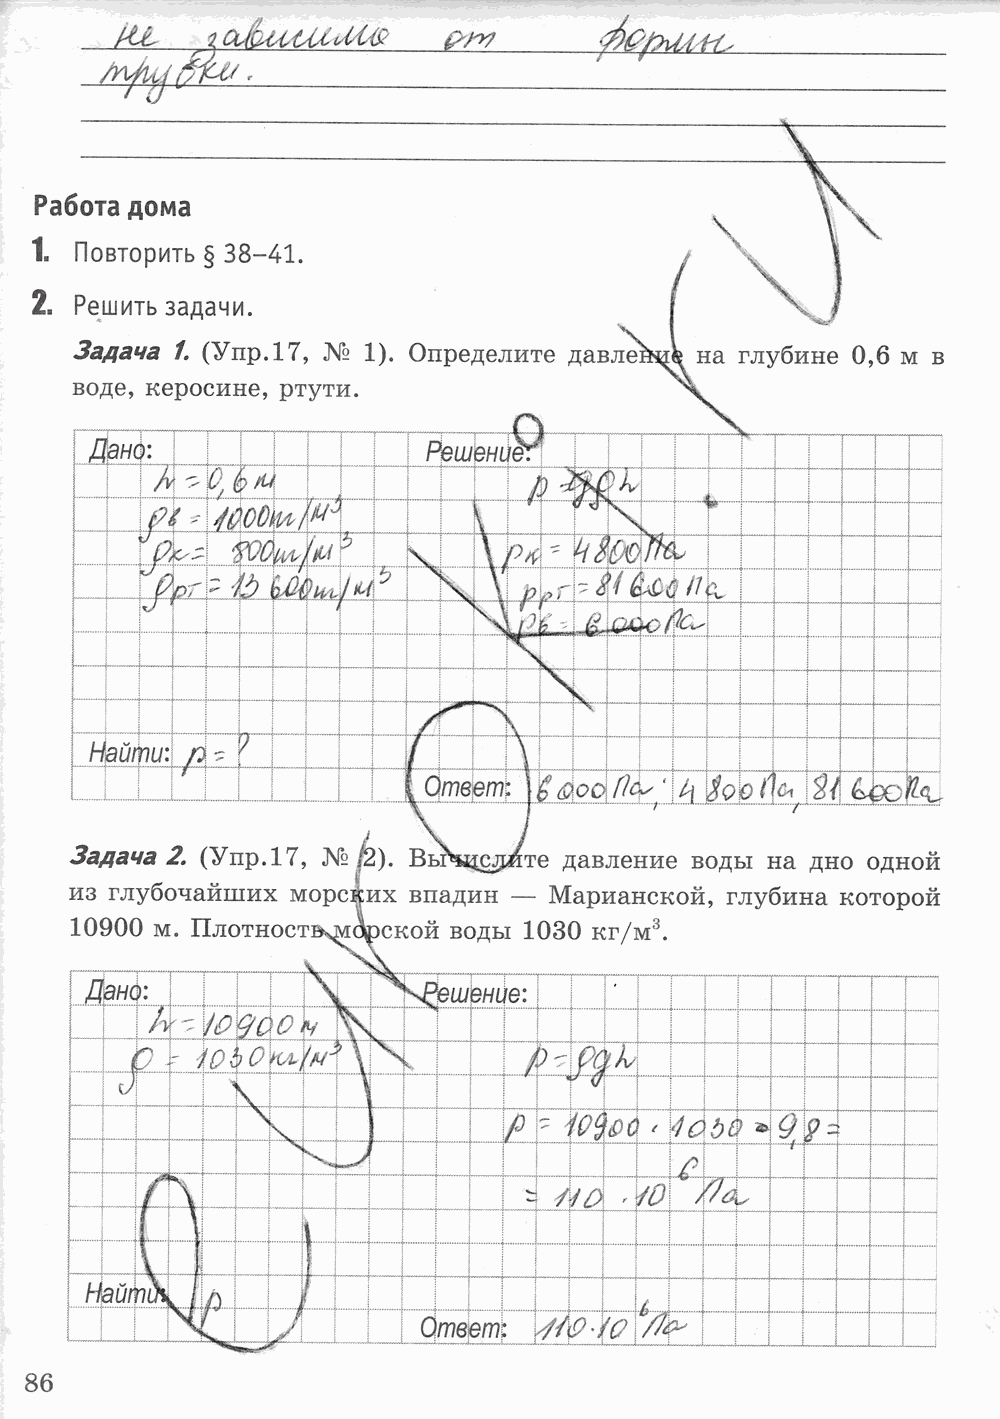 не зависимо от формы
трубки.
Работа дома
1. Повторить § 38–41.
2. Решить задачи.
Задача 1. (Упр.17, № 1). Определите давление на глубине 0,6 м в
воде, керосине, ртути.
Дано: Решение:
h = 0,6 м p = gρh
ρв = 1000кг/м³
ρк = 800кг/м³ pк = 4800Па
ρрт = 13 600кг/м³ pрт = 81 600Па
pв = 6 000Па
Найти: p = ?
Ответ: 6 000Па; 4 800Па, 81 600Па
Задача 2. (Упр.17, № 2). Вычислите давление воды на дно одной
из глубочайших морских впадин — Марианской, глубина которой
10900 м. Плотность морской воды 1030 кг/м³.
Дано: Решение:
h = 10900м
ρ = 1030кг/м³ p = ρgh
p = 10900 · 1030 · 9,8 =
= 110 · 10⁶ Па
Найти: p
Ответ: 110·10⁶ Па
86